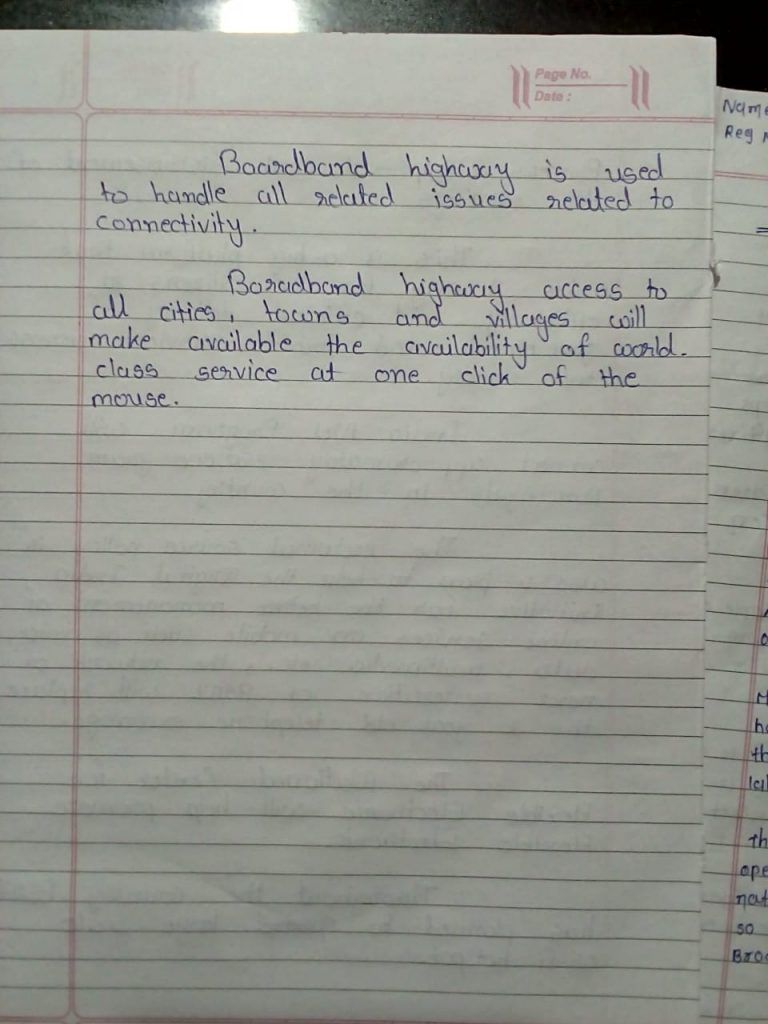 Page No.
Date :
Name
Reg
Boardband highway is used
to handle all related issues related to
connectivity.
Boradband highway access to
all cities, towns and villages will
make available the availability of world.
class service at one click of the
mouse.
=
th
ope
nat
so